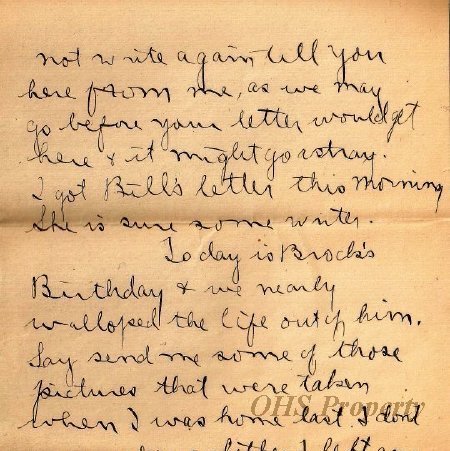 not write again till you
here from me, as we may
go before your letter would get
here & it might go astray.
I got Bill's letter this morning
She is sure some writer.
Today is Brock's
Birthday & we nearly
walloped the life out of him.
Say send me some of those
pictures that were taken
when I was home last I dont
OHS Property
I left